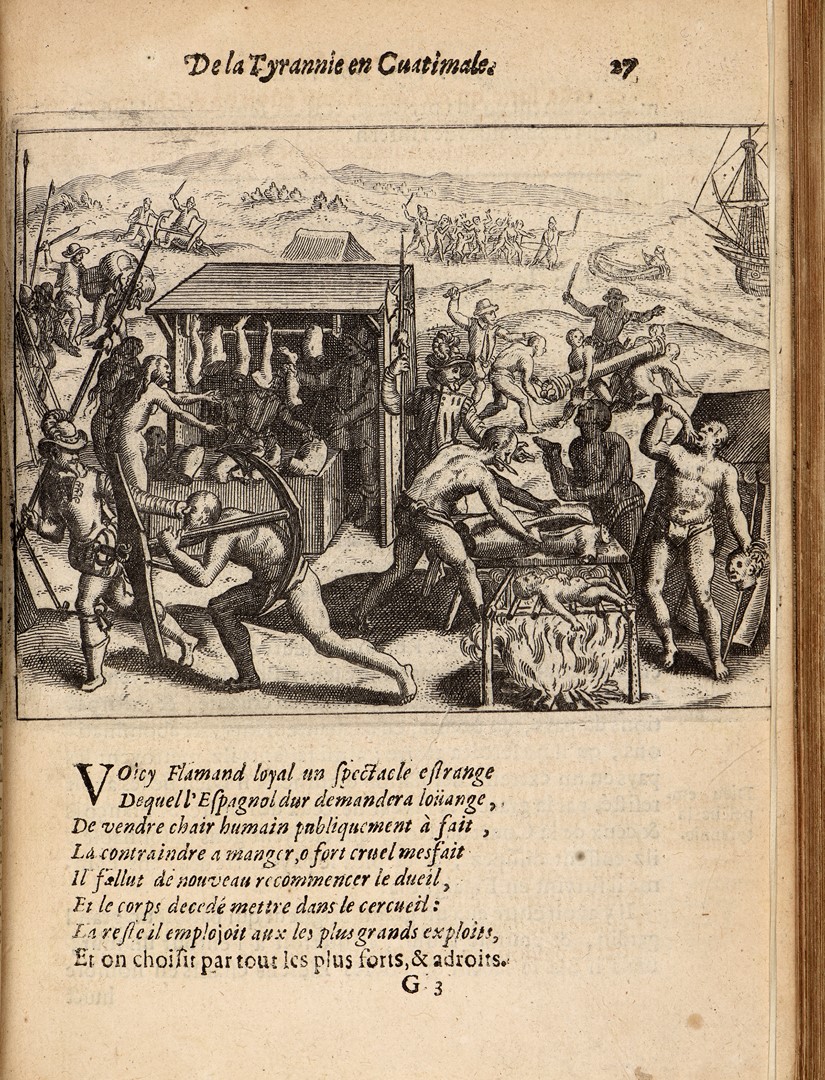 De la Tyrannie en Cuatimale.
27
VOicy Flamand loyal un ſpectacle eſtrange
Dequel l'Eſpagnol dur demandera loüange,
De vendre chair humain publiquement à fait,
La contraindre a manger, o fort cruel mesfait
Il fallut de nouveau recommencer le dueil,
Et le corps decedé mettre dans le cercueil:
La reſte il emplojoit aux les plus grands exploits,
Et on choiſit par tout les plus forts, & adroits.
G 3